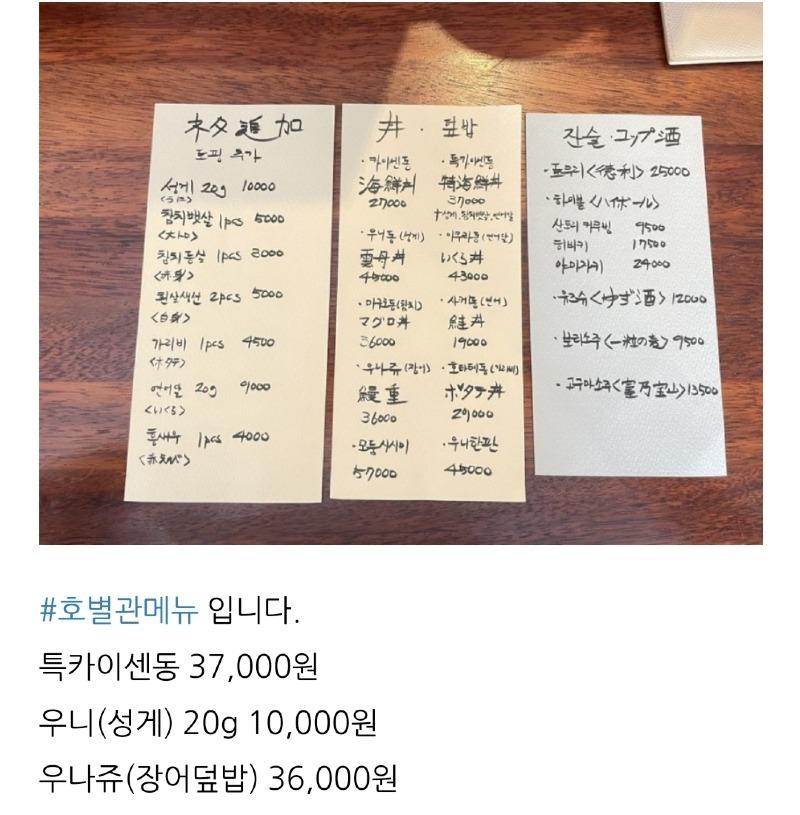 ネタ追加
토핑 추가
성게 20g 10000
<うに>
참치뱃살 1pcs 5000
<大トロ>
참치등살 1pcs 3000
<赤身>
흰살생선 2pcs 5000
<白身>
가리비 1pcs 4500
<ホタテ>
연어알 20g 9000
<いくら>
홍새우 1pcs 4000
<赤えび>
丼 · 덮밥
· 카이센동
海鮮丼
27000
· 특카이센동
特海鮮丼
37000
+성게, 참치뱃살, 연어알
· 우니동 (성게)
雲丹丼
45000
· 이쿠라동 (연어알)
いくら丼
43000
· 마구로동 (참치)
マグロ丼
36000
· 사케동 (연어)
鮭丼
19000
· 우나쥬 (장어)
鰻重
36000
· 호타테동 (가리비)
ホタテ丼
29000
· 모둠사시미
57000
· 우니한판
45000
잔술 · コップ酒
· 도쿠리 <徳利> 25000
· 하이볼 <ハイボール>
산토리 가쿠빈 9500
히비키 17500
야마자키 24000
· 유즈슈 <ゆず酒> 12000
· 보리소주 <一粒の麦> 9500
· 고구마소주 <富乃宝山> 13500
#호별관메뉴 입니다.
특카이센동 37,000원
우니(성게) 20g 10,000원
우나쥬(장어덮밥) 36,000원